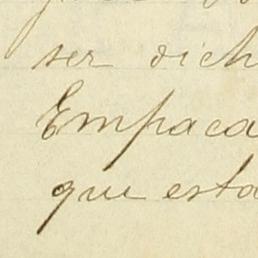 ser dich
Empaca
que esta